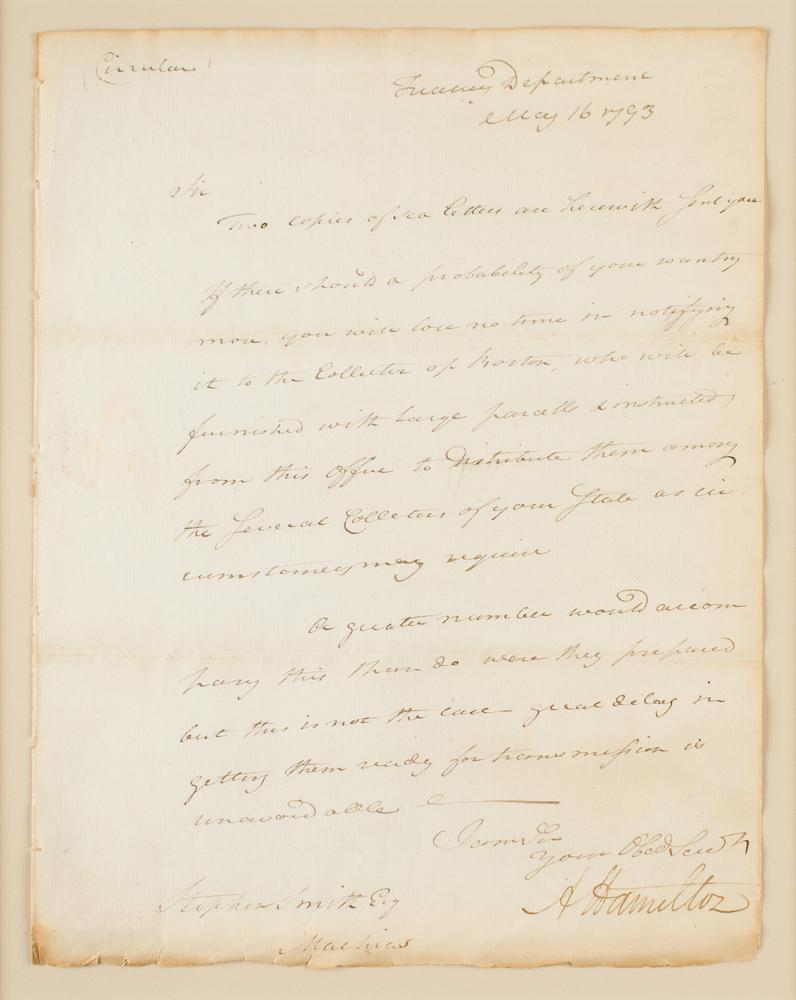 (Circular)
Treasury Department
May 16 1793
Sir
Two copies of sea letters are herewith sent you
If there should a probability of your wanting
more, you will lose no time in notifying
it to the Collector of Boston, who will be
furnished with large parcells & instructed
from this Office to distribute them among
the Several Collectors of your State as cir
cumstances may require
A greater number would accom
pany this than do were they prepared
but this is not the case – great delay in
getting them ready for transmission is
unavoidable
I am Sir
Your Obed Servt
A Hamilton
Stephen Smith Esq
Machias